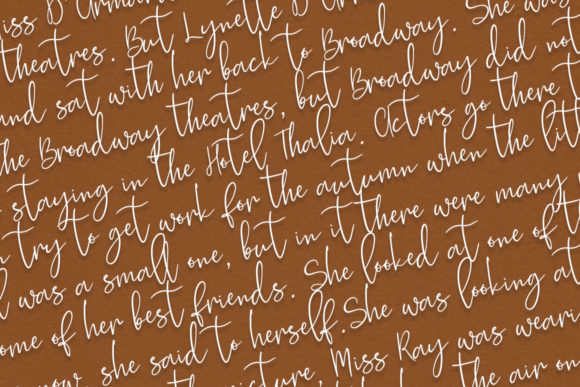 iss D'Arman
theatres. But Lynette D'
and sat with her back to Broadway. She was
the Broadway theatres, but Broadway did not
staying in the Hotel Thalia. Actors go there t
try to get work for the autumn when the litt
was a small one, but in it there were many
ome of her best friends. She looked at one of t
now, she said to herself. She was looking at
picture, Miss Ray was weari
the air on